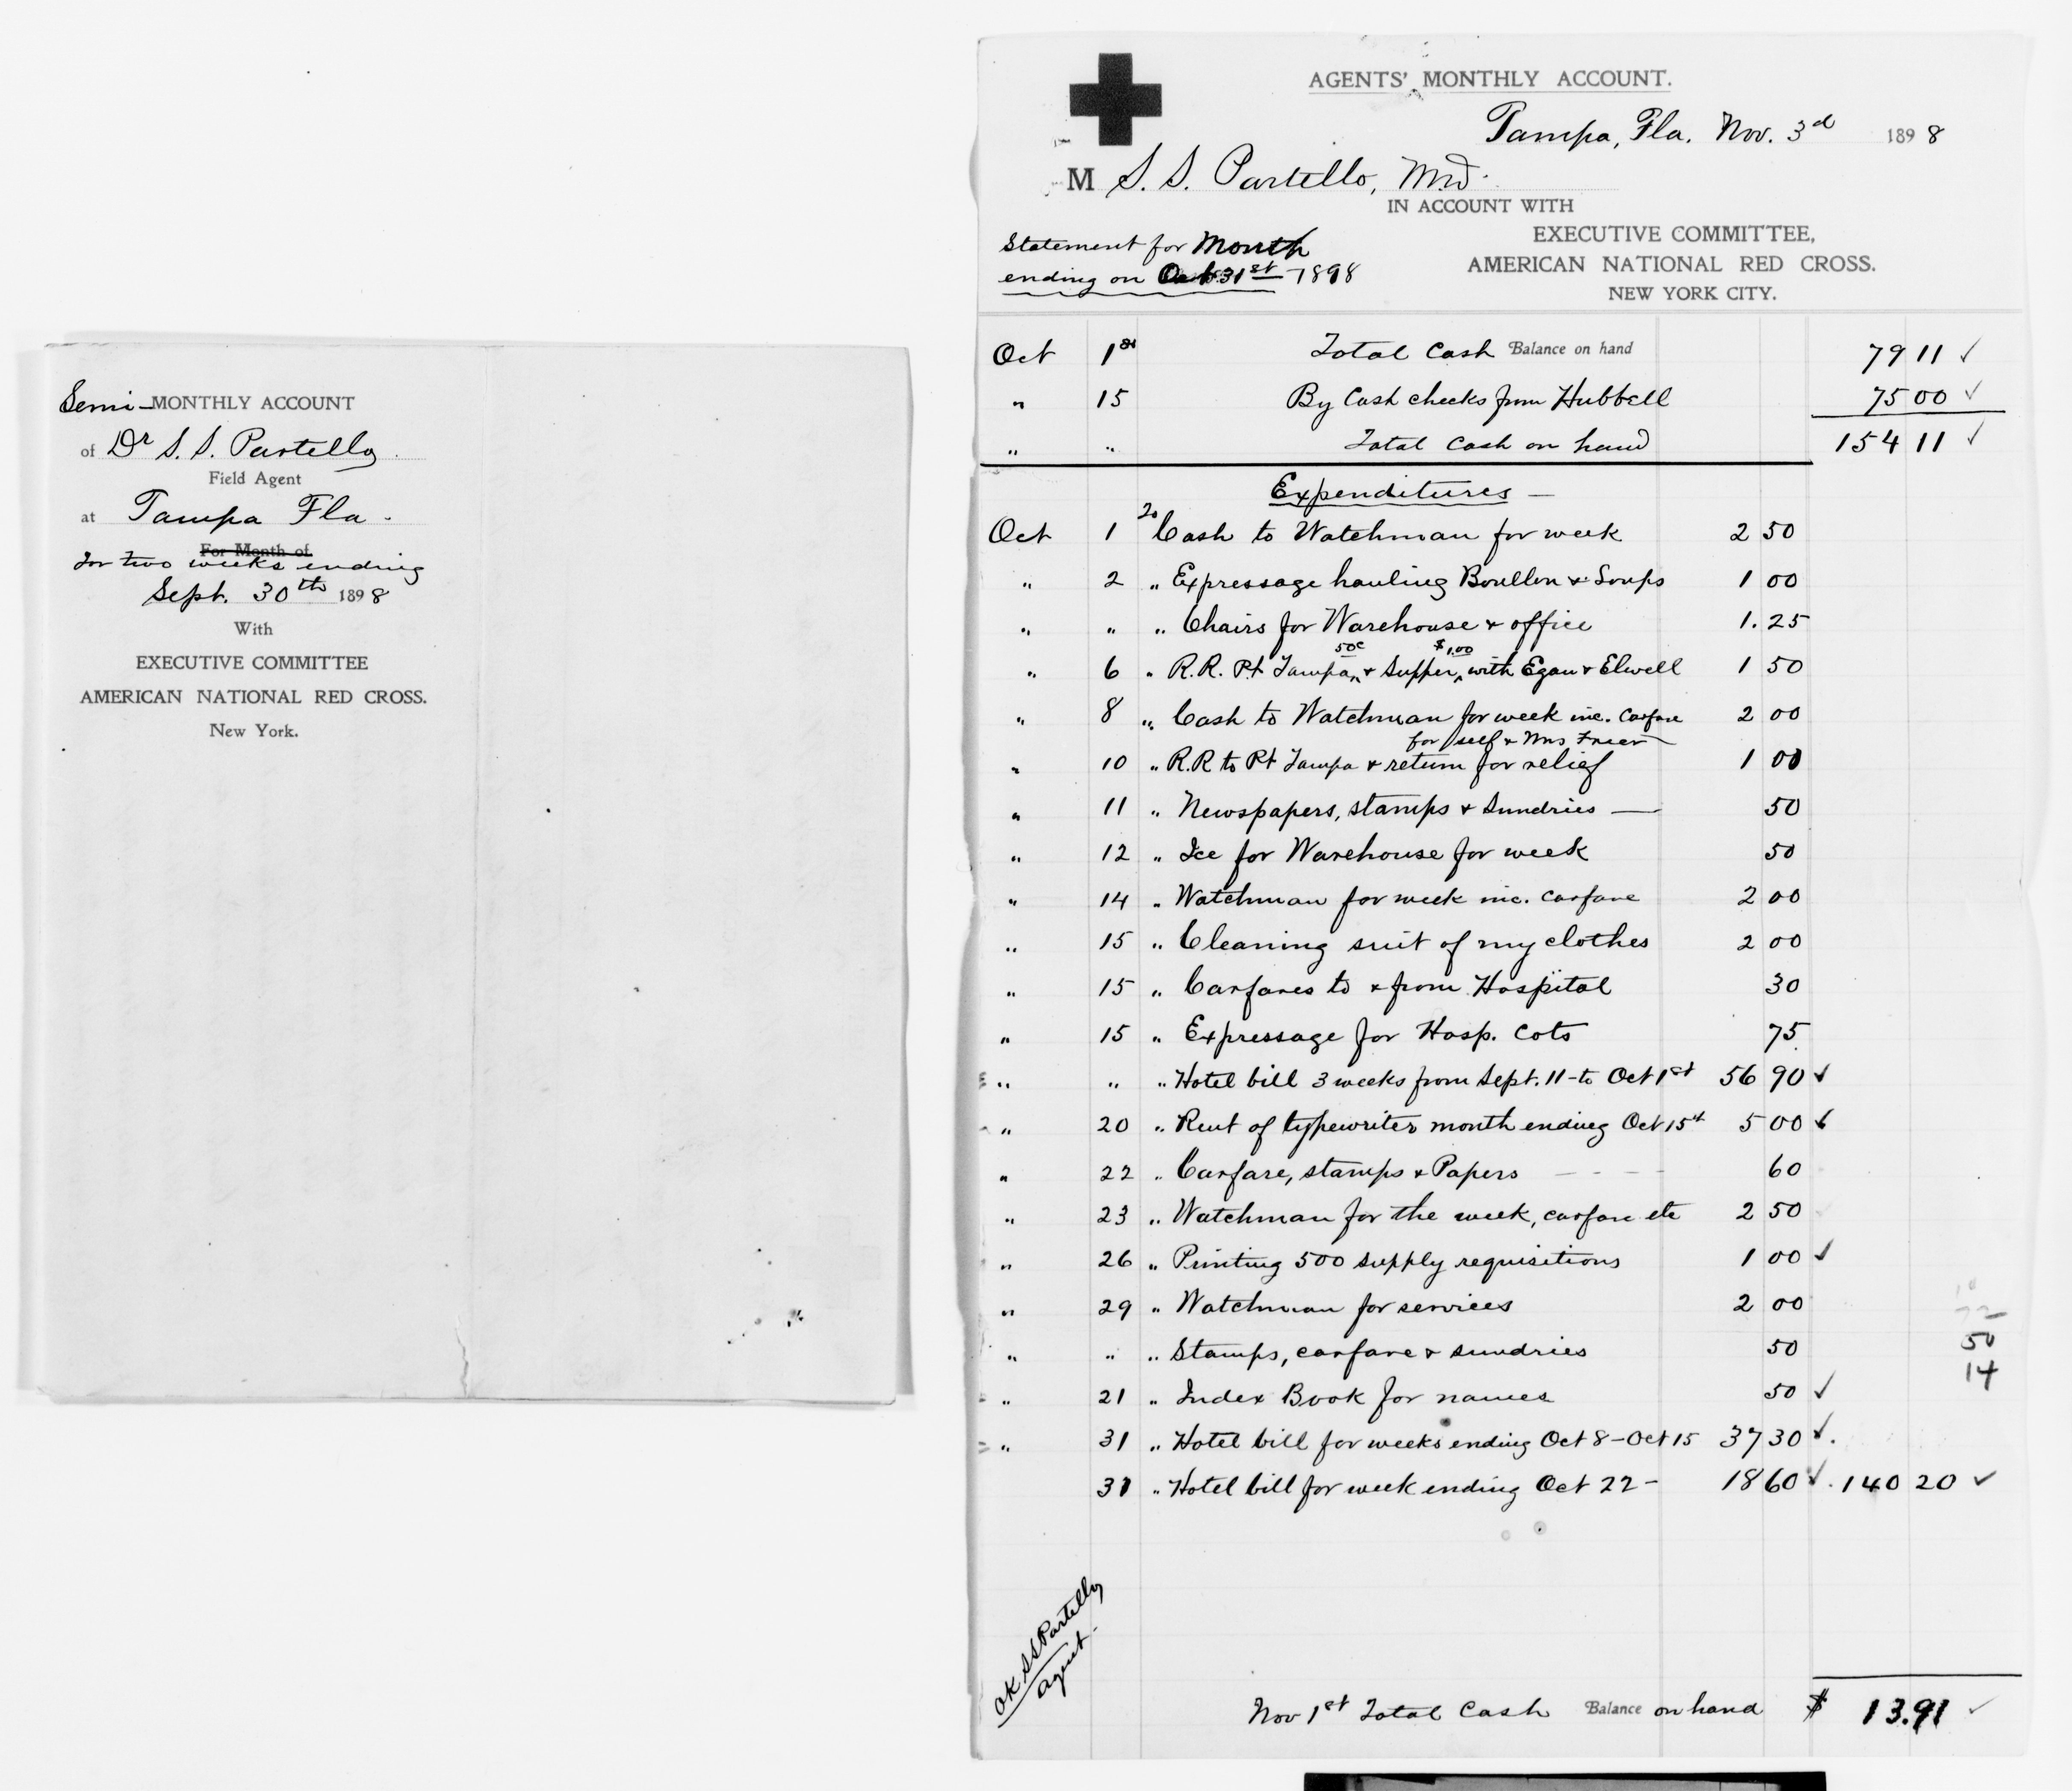 Semi-MONTHLY ACCOUNT
of Dr S. S. Partello
Field Agent
at Tampa Fla.
For Month of
for two weeks ending
Sept. 30th 1898
With
EXECUTIVE COMMITTEE
AMERICAN NATIONAL RED CROSS.
New York.
AGENTS' MONTHLY ACCOUNT.
Tampa, Fla. Nov. 3d 1898
M S. S. Partello, M.D.
IN ACCOUNT WITH
EXECUTIVE COMMITTEE,
AMERICAN NATIONAL RED CROSS.
NEW YORK CITY.
Statement for Month
ending on Oct 31st 1898
Oct 1st Total Cash Balance on hand 79 11 ✓
" 15 By Cash checks from Hubbell 75 00 ✓
" " Total Cash on hand 154 11 ✓
Expenditures —
Oct 1 To Cash to Watchman for week 2 50
" 2 " Expressage hauling Boullon & Soups 1 00
" " " Chairs for Warehouse & office 1.25
50c $1.00
" 6 " R.R. Pt Tampa & Supper with Egan & Elwell 1 50
" 8 " Cash to Watchman for week inc. Carfare 2 00
for self & Mrs Freer
" 10 " R.R to Pt Tampa & return for relief 1 00
" 11 " Newspapers, stamps & Sundries — 50
" 12 " Ice for Warehouse for week 50
" 14 " Watchman for week inc. Carfare 2 00
" 15 " Cleaning suit of my clothes 2 00
" 15 " Carfares to & from Hospital 30
" 15 " Expressage for Hosp. Cots 75
" " " Hotel bill 3 weeks from Sept. 11 - to Oct 1st 56 90 ✓
" 20 " Rent of typewriter month ending Oct 15th 5 00 ✓
" 22 " Carfare, stamps & Papers - - - - 60
" 23 " Watchman for the week, carfare etc 2 50
" 26 " Printing 500 supply requisitions 1 00 ✓
" 29 " Watchman for services 2 00
" " " Stamps, carfare & sundries 50
50
14
" 21 " Index Book for names 50 ✓
" 31 " Hotel bill for weeks ending Oct 8 - Oct 15 37 30 ✓
31 " Hotel bill for week ending Oct 22 - 18 60 ✓ 140 20 ✓
OK SS Partello
Agent.
Nov 1st Total Cash Balance on hand $ 13.91 ✓